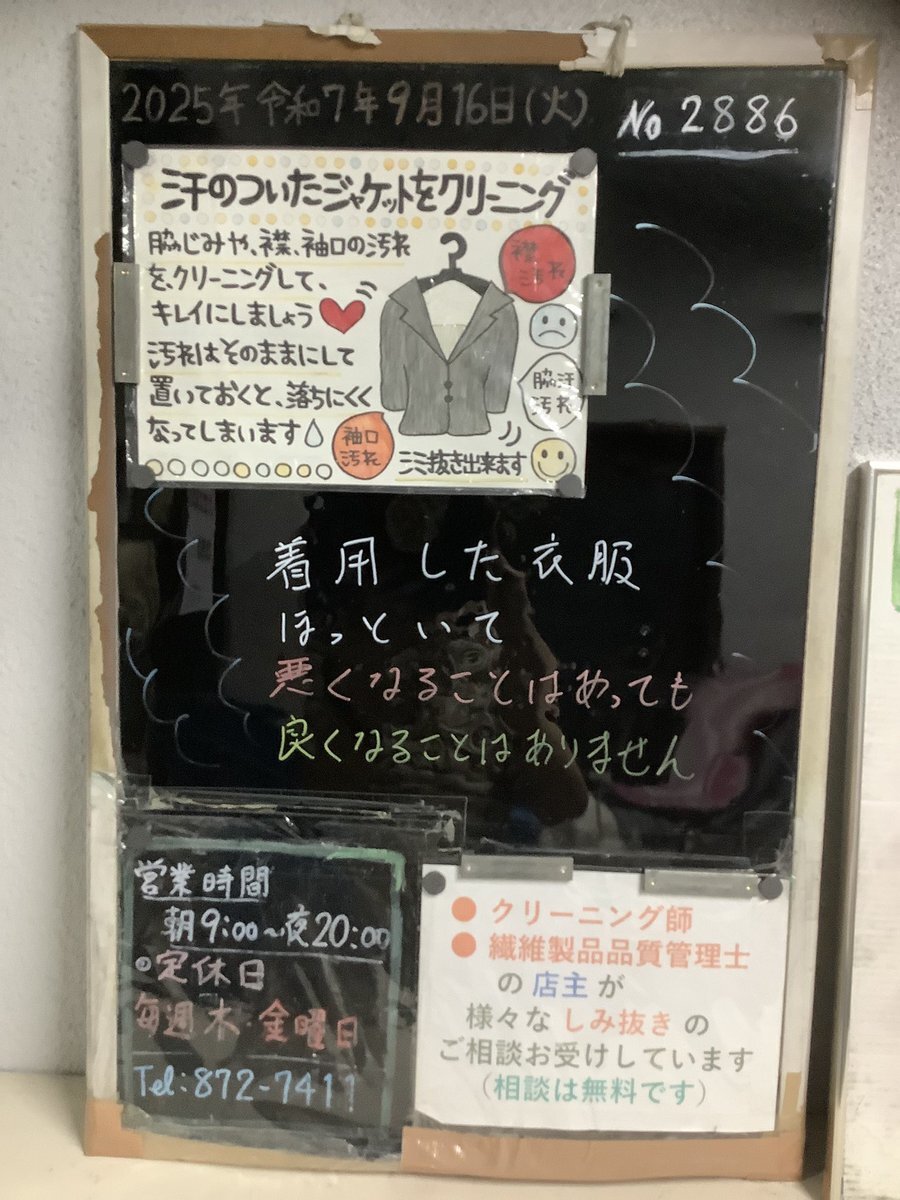 2025年 令和7年9月16日(火)
No 2886
汗のついたジャケットをクリーニング
脇じみや、襟、袖口の汚れ
を、クリーニングして、
キレイにしましょう
汚れはそのままにして
置いておくと、落ちにくく
なってしまいます
襟
汚れ
脇汗
汚れ
袖口
汚れ
シミ抜き出来ます
着用した衣服
ほっといて
悪くなることはあっても
良くなることはありません
営業時間
朝9:00~夜20:00
定休日
毎週木 金曜日
Tel:872-7411
● クリーニング師
● 繊維製品品質管理士
の 店主 が
様々な しみ抜き の
ご相談お受けしています
(相談は無料です)